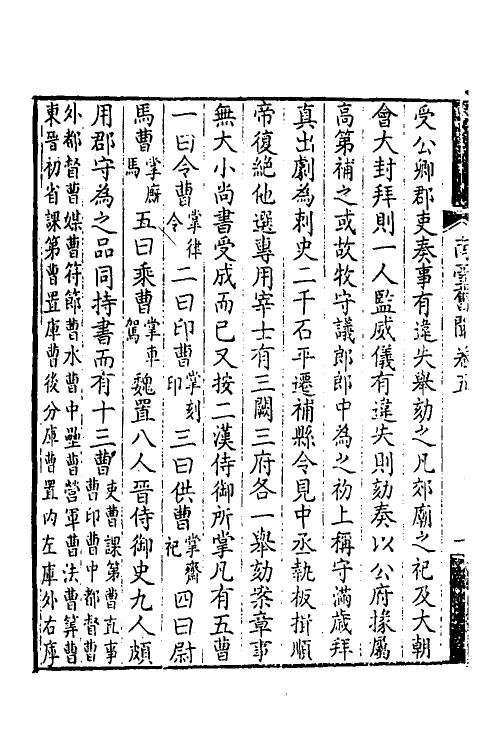 受公卿郡吏奏事有違失舉劾之凡郊廟之祀及大朝
會大封拜則一人監威儀有違失則劾奏以公府掾屬
高第補之或故牧守議郎郎中為之初上稱守滿歲拜
真出劇為刺史二千石平遷補縣令見中丞執板揖順
帝復絶他選專用宰士有三闕三府各一舉劾案章事
無大小尚書受成而已又按二漢侍御所掌凡有五曹
一曰令曹掌律令二曰印曹掌刻印三曰供曹掌齋祀四曰尉
馬曹掌廐馬五曰乘曹掌車駕魏置八人晉侍御史九人頗
用郡守為之品同持書而有十三曹吏曹課第曹直事曹印曹中都督曹
外都督曹媒曹符節曹水曹中壘曹營軍曹法曹算曹
東晉初省課第曹置庫曹後分庫曹置内左庫外右庫
南臺舊聞卷五
一